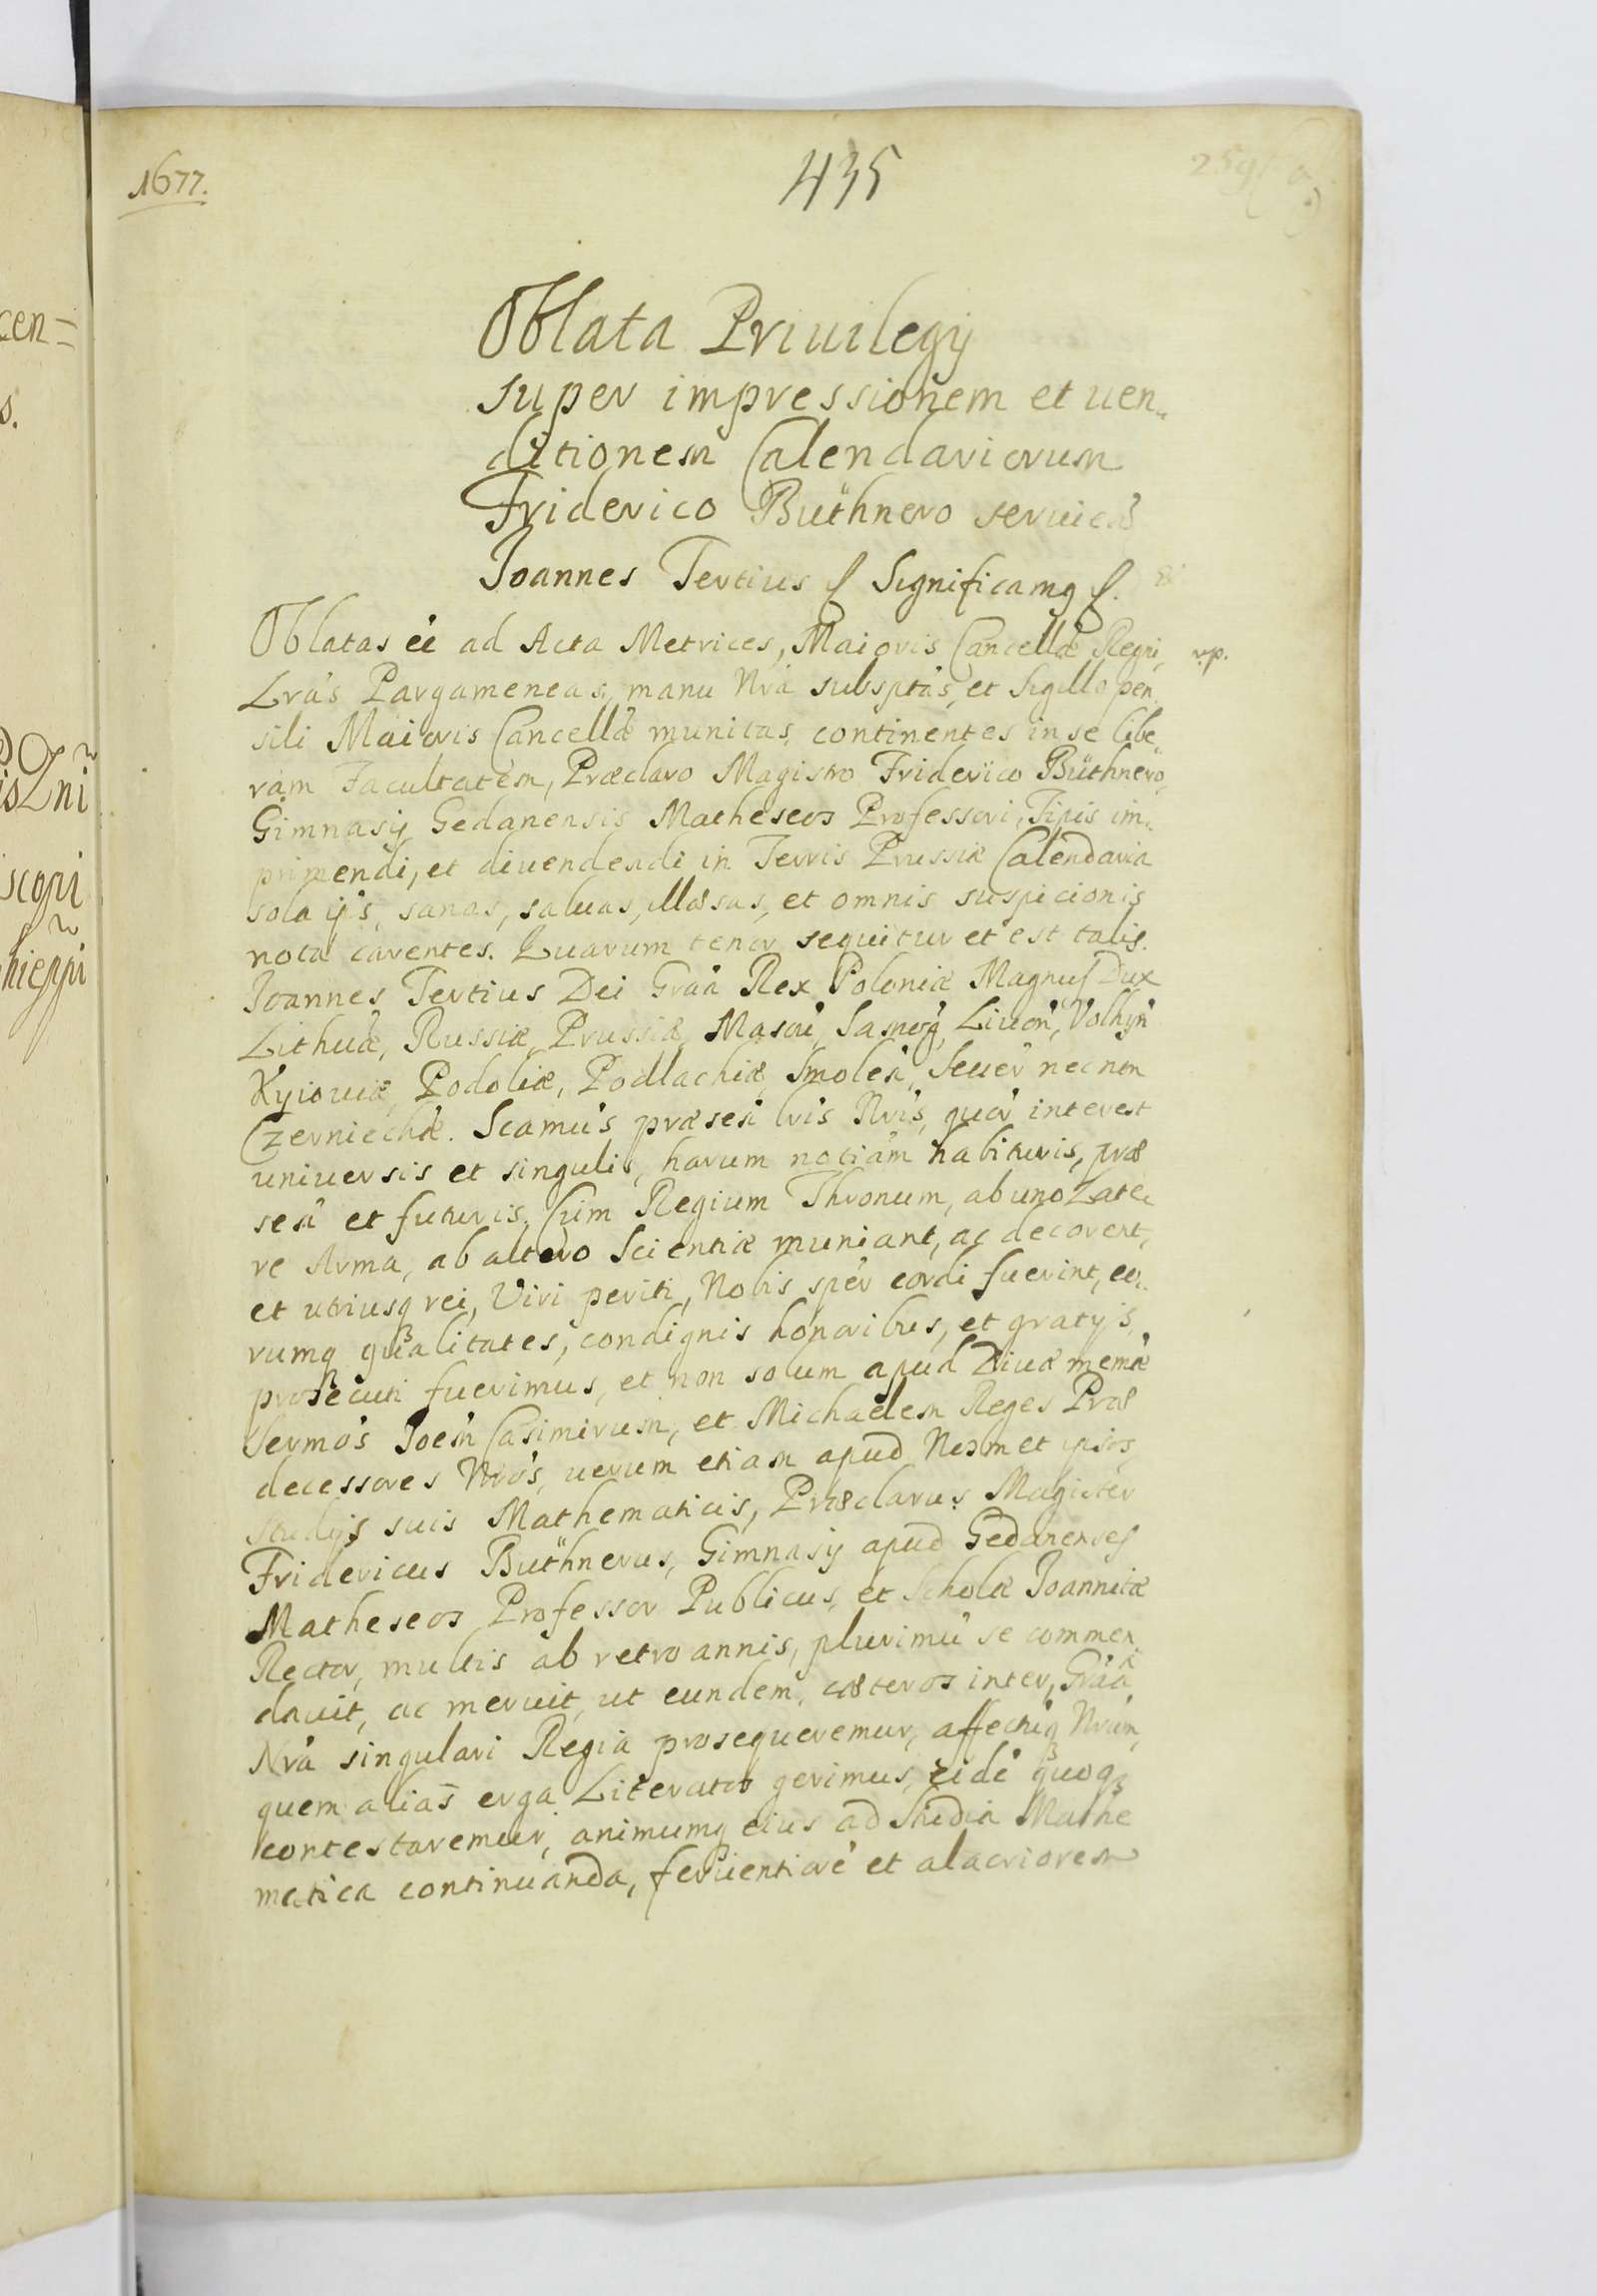 1677.
435
259
Oblata Priuilegij
super impressionem et uen„
ditionem Calendariorum
Friderico Büthnero seruieñ
Joannes Tertius ſ Significamq ſ.
Oblatas eě ad Acta Metrices, Maioris Cancellæ Regni, rp.
Lrás Pargameneas, manu Nrá subsptás, et Sigillo pen
sili Maioris Cancellæ munitas, continentes in se libe„
ram Facultatem, Præclaro Magistro Friderico Büthnero,
Gimnasij Gedanensis Matheseos Professori, Tipis im„
primendi, et diuendendi in Terris Prussiæ Calendaria
sola ijs, sanas, saluas, illæsas, et omnis suspicionis
nota carentes. Quarum tenor sequitur et est talis.
Joannes Tertius Dei Graá Rex Poloniæ Magnus Dux
Lithuæ, Russiæ, Prussiæ, Masou, Samog, Liuoń, Volhyń
Kyiouiæ, Podoliæ, Podlachiæ, Smoleń, Seuer necnon
Czerniechæ. Scamús præseń lris Nris, quór interest
uniuersis et singulis, harum notiám habituris, præ
seń et futuris, Cum Regium Thronum, ab uno Late„
re Arma, ab altero Scientiæ muniant, ac decorent,
et utriusq rei, Viri periti, Nobis spér cordi fuerint, eo„
rumq qualitates, condignis honoribus, et gratijs
prosecuti fuerimus, et non solum apud Diuæ memæ
Sermós Joeń Casimirum, et Michaelem Reges Præ
decessores Nrós, uerum etiam apud Nosmet ipsos,
studijs suis Mathematicis, Præclarus Magister
Fridericus Büthnerus, Gimnasij apud Gedanenses
Matheseos Professor Publicus, et Scholæ Joannitæ
Rector, multis ab retro annis, plurimú se commen
dauit, ac meruit, ut eundem, cæteros inter, Graá
Nrá singulari Regia prosequeremur, affectúq Nrúm,
quem alias erga Literatos gerimus, eidé quoq
contestaremur, animumq eius ad Studia Mathe
matica continuanda, feruentioré et alacriorem